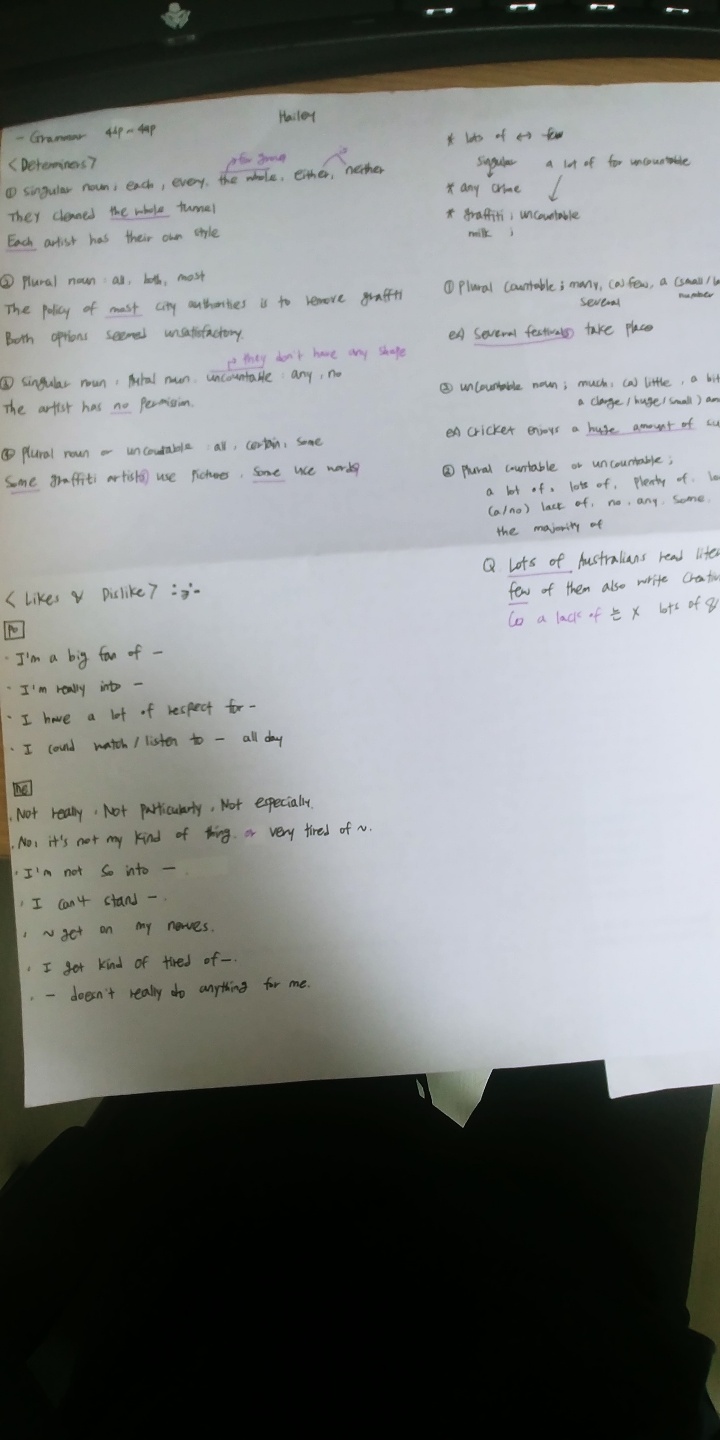 Hailey
- Grammar 44p ~ 49p
<Determiners>
① singular noun ; each, every, the whole, either, neither
They cleaned the whole tunnel
Each artist has their own style
② Plural noun : all, both, most
The policy of most city authorities is to remove graffiti
Both options seemed unsatisfactory.
→ they don't have any shape
③ singular noun, plural noun, uncountable : any, no
The artist has no permission.
④ plural noun or uncountable : all, certain, some
Some graffiti artists use pictures, some use words
<Likes & Dislike>
Po
· I'm a big fan of -
· I'm really into -
· I have a lot of respect for -
· I could watch / listen to - all day
Ne
· Not really, Not particularly, Not especially.
· No, it's not my kind of thing. or very tired of ~.
· I'm not so into -
· I can't stand -.
· ~ get on my nerves.
· I get kind of tired of -.
· - doesn't really do anything for me.
* lots of ↔ few
singular a lot of for uncountable
* any crime
* graffiti ; uncountable
milk ;
① Plural countable ; many, (a) few, a (small/
several number
ex) Several festivals take place
② uncountable noun ; much, (a) little, a bit
a (large / huge / small)
ex) Cricket enjoys a huge amount of
③ Plural countable or uncountable ;
a lot of, lots of, plenty of,
(a/no) lack of, no, any, some,
the majority of
Q. Lots of Australians read
few of them also write
a lack of 는 X lots of